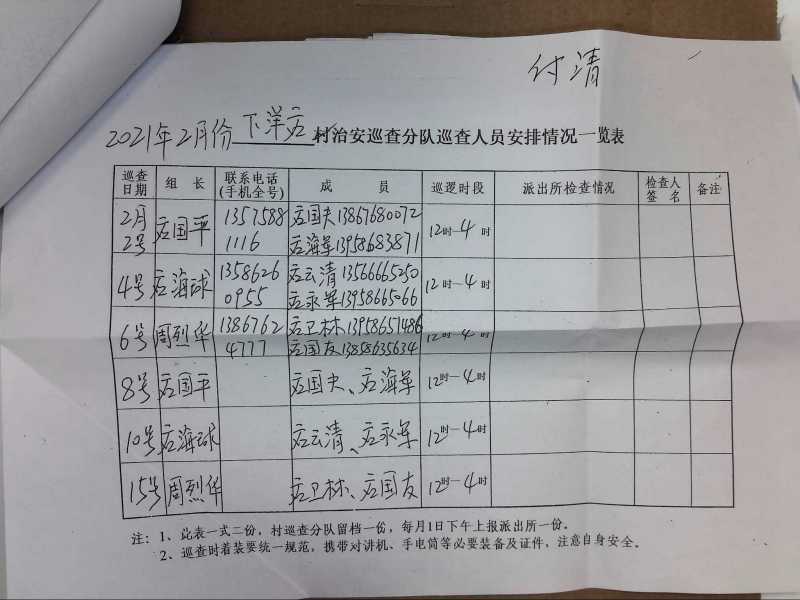 付清
2021年2月份 下洋应 村治安巡查分队巡查人员安排情况一览表
巡查日期 组长 联系电话(手机全号) 成员 巡逻时段 派出所检查情况 检查人签名 备注
2月2号 应国平 1357588 1116 应国夫13867680072 应海军13958683871 12时-4时
4号 应海球 1358626 0955 应云清13566665250 应永军13958665066 12时-4时
6号 周烈华 1386762 4777 应卫林13958651486 应国友13858635634 12时-4时
8号 应国平 应国夫、应海军 12时-4时
10号 应海球 应云清、应永军 12时-4时
15号 周烈华 应卫林、应国友 12时-4时
注：1、此表一式二份，村巡查分队留档一份，每月1日下午上报派出所一份。
2、巡查时着装要统一规范，携带对讲机、手电筒等必要装备及证件，注意自身安全。